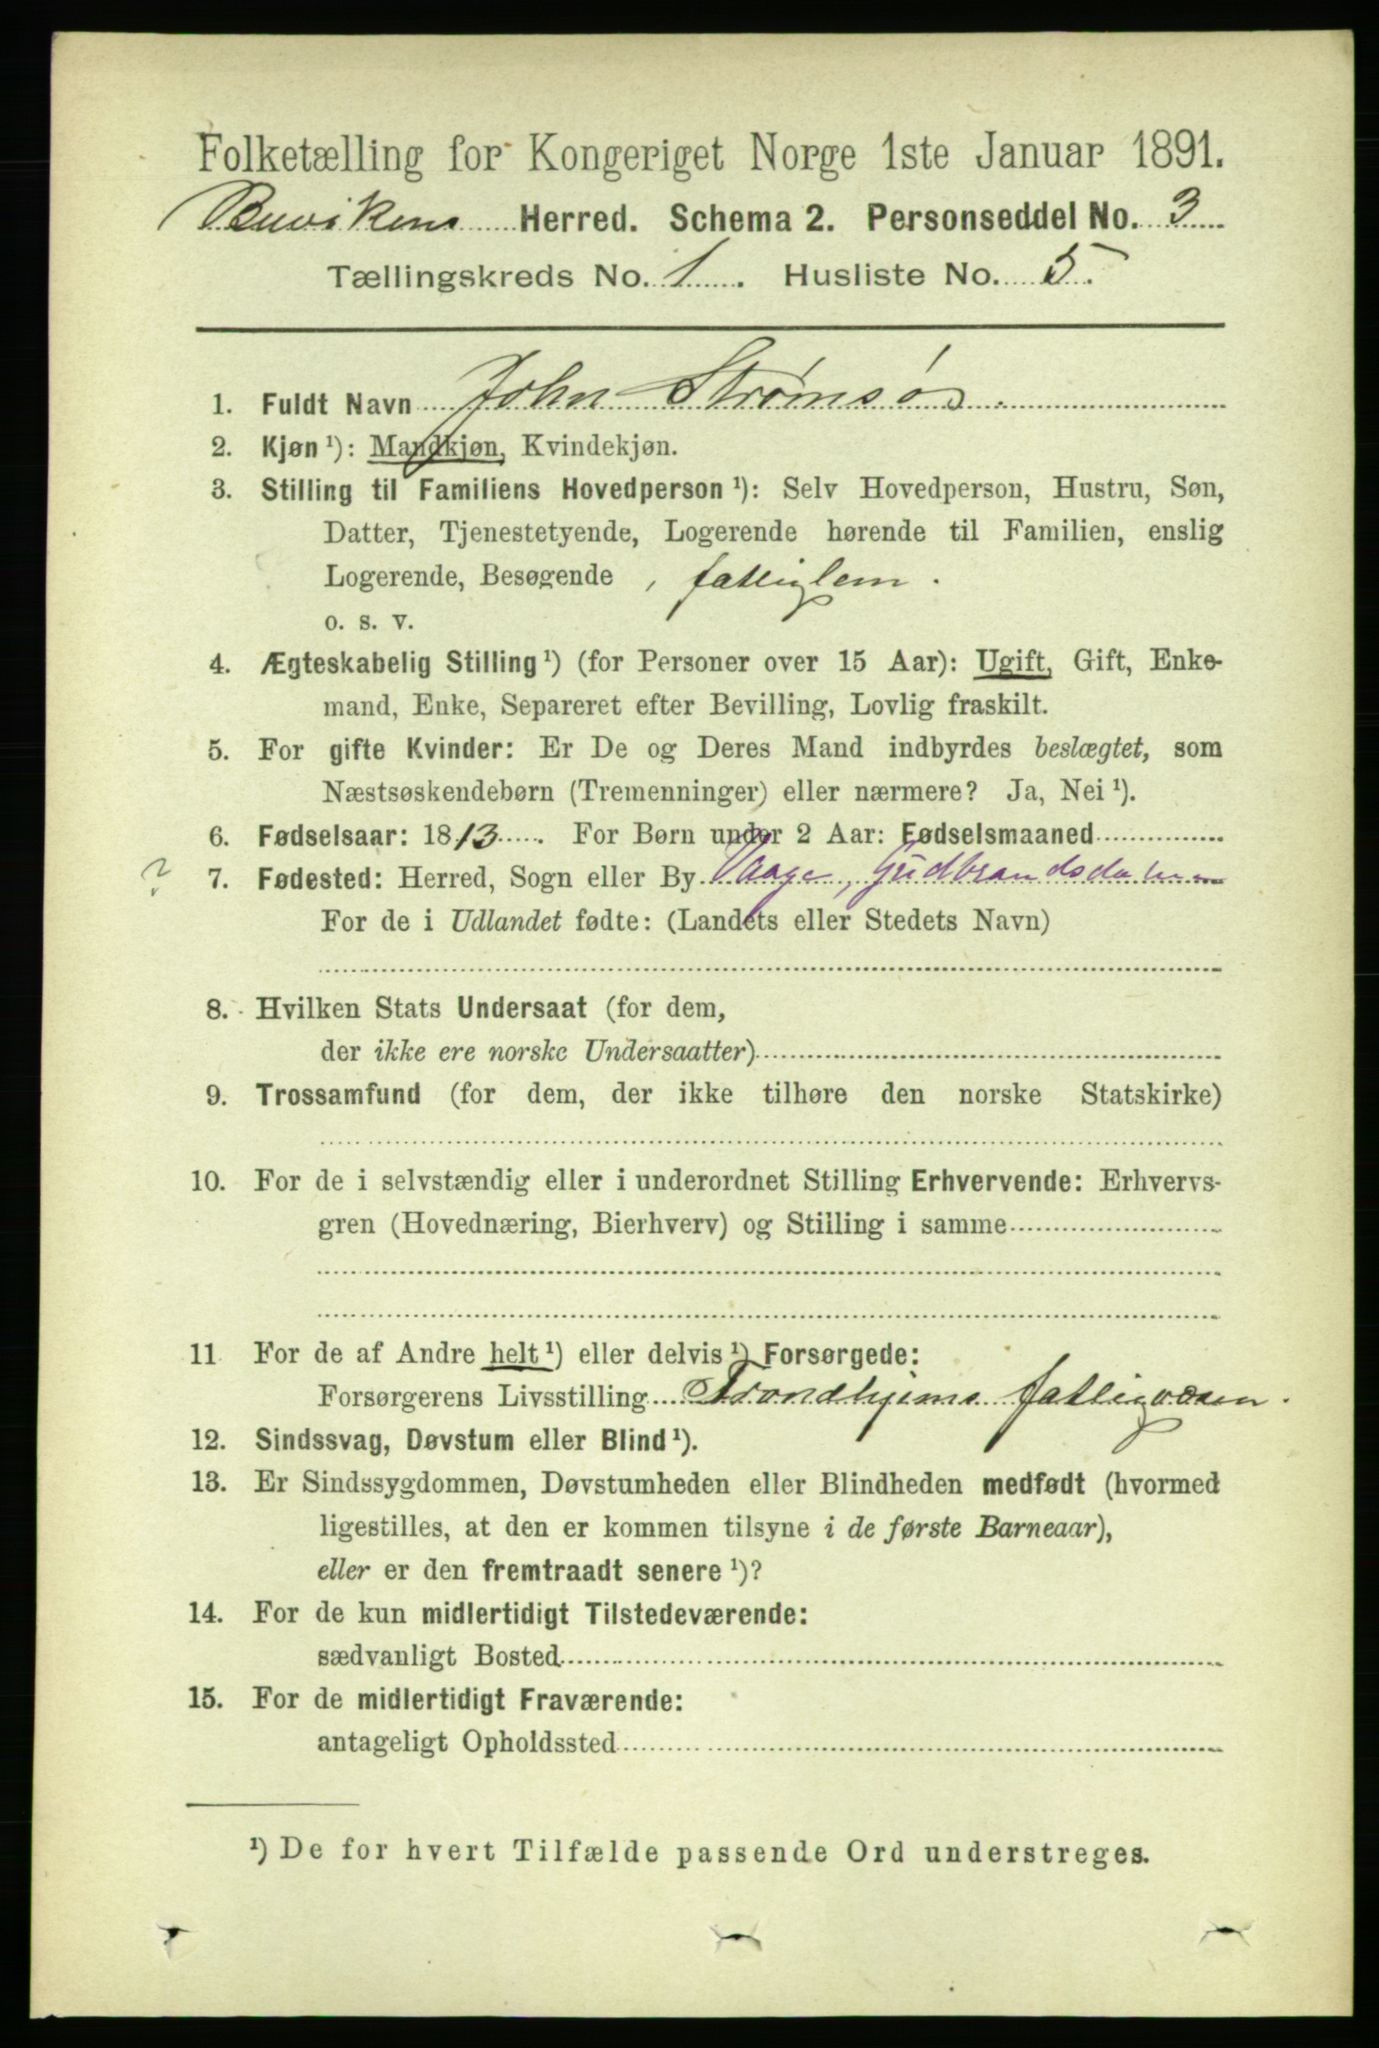 Folketælling for Kongeriget Norge 1ste Januar 1891.
Buvikens Herred. Schema 2. Personseddel No. 3
Tællingskreds No. 1. Husliste No. 5.
1. Fuldt Navn John Strømsø.
2. Kjøn¹): Mandkjøn, Kvindekjøn.
3. Stilling til Familiens Hovedperson¹): Selv Hovedperson, Hustru, Søn,
Datter, Tjenestetyende, Logerende hørende til Familien, enslig
Logerende, Besøgende, fattiglem.
o. s. v.
4. Ægteskabelig Stilling¹) (for Personer over 15 Aar): Ugift, Gift, Enke-
mand, Enke, Separeret efter Bevilling, Lovlig fraskilt.
5. For gifte Kvinder: Er De og Deres Mand indbyrdes beslægtet, som
Næstsøskendebørn (Tremenninger) eller nærmere? Ja, Nei¹).
6. Fødselsaar: 1813. For Børn under 2 Aar: Fødselsmaaned
? 7. Fødested: Herred, Sogn eller By Vaage, Gudbrandsdalen
For de i Udlandet fødte: (Landets eller Stedets Navn)
8. Hvilken Stats Undersaat (for dem,
der ikke ere norske Undersaatter)
9. Trossamfund (for dem, der ikke tilhøre den norske Statskirke)
10. For de i selvstændig eller i underordnet Stilling Erhvervende: Erhvervs-
gren (Hovednæring, Bierhverv) og Stilling i samme
11 For de af Andre helt¹) eller delvis¹) Forsørgede:
Forsørgerens Livsstilling Trondhjems fattigvæsen.
12. Sindssvag, Døvstum eller Blind¹).
13. Er Sindssygdommen, Døvstumheden eller Blindheden medfødt (hvormed
ligestilles, at den er kommen tilsyne i de første Barneaar),
eller er den fremtraadt senere¹)?
14. For de kun midlertidigt Tilstedeværende:
sædvanligt Bosted
15. For de midlertidigt Fraværende:
antageligt Opholdssted
¹) De for hvert Tilfælde passende Ord understreges.